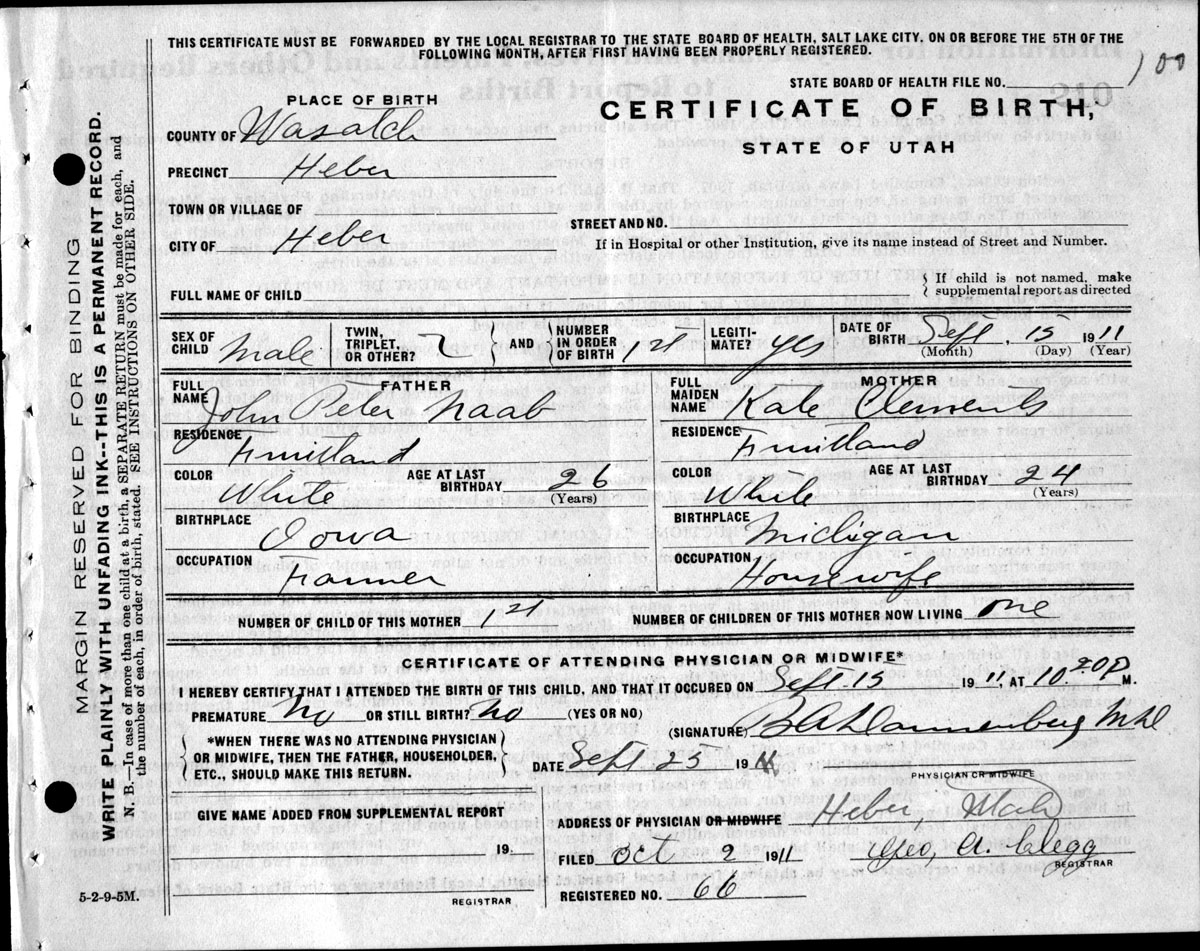 THIS CERTIFICATE MUST BE FORWARDED BY THE LOCAL REGISTRAR TO THE STATE BOARD OF HEALTH, SALT LAKE CITY, ON OR BEFORE THE 5TH OF THE
FOLLOWING MONTH, AFTER FIRST HAVING BEEN PROPERLY REGISTERED.
100
STATE BOARD OF HEALTH FILE NO.
MARGIN RESERVED FOR BINDING
WRITE PLAINLY WITH UNFADING INK--THIS IS A PERMANENT RECORD.
N. B.—In case of more than one child at a birth, a SEPARATE RETURN must be made for each, and
the number of each, in order of birth, stated. SEE INSTRUCTIONS ON OTHER SIDE.
PLACE OF BIRTH
CERTIFICATE OF BIRTH,
STATE OF UTAH
COUNTY OF Wasatch
PRECINCT Heber
TOWN OR VILLAGE OF
STREET AND NO.
CITY OF Heber
If in Hospital or other Institution, give its name instead of Street and Number.
FULL NAME OF CHILD
If child is not named, make
supplemental report as directed
SEX OF CHILD Male TWIN, TRIPLET, OR OTHER? AND NUMBER IN ORDER OF BIRTH 1st LEGITIMATE? yes DATE OF BIRTH Sept. 15 1911
(Month) (Day) (Year)
FATHER
FULL NAME John Peter Naab
RESIDENCE Fruitland
COLOR White AGE AT LAST BIRTHDAY 26 (Years)
BIRTHPLACE Iowa
OCCUPATION Farmer
MOTHER
FULL MAIDEN NAME Kate Clements
RESIDENCE Fruitland
COLOR White AGE AT LAST BIRTHDAY 24 (Years)
BIRTHPLACE Michigan
OCCUPATION Housewife
NUMBER OF CHILD OF THIS MOTHER 1st NUMBER OF CHILDREN OF THIS MOTHER NOW LIVING one
CERTIFICATE OF ATTENDING PHYSICIAN OR MIDWIFE*
I HEREBY CERTIFY THAT I ATTENDED THE BIRTH OF THIS CHILD, AND THAT IT OCCURED ON Sept. 15 1911, AT 10.20 P M.
PREMATURE No OR STILL BIRTH? No (YES OR NO)
(SIGNATURE)
*WHEN THERE WAS NO ATTENDING PHYSICIAN
OR MIDWIFE, THEN THE FATHER, HOUSEHOLDER,
ETC., SHOULD MAKE THIS RETURN.
DATE Sept 25 19
PHYSICIAN OR MIDWIFE
GIVE NAME ADDED FROM SUPPLEMENTAL REPORT
19
REGISTRAR
ADDRESS OF PHYSICIAN OR MIDWIFE Heber, Utah
FILED Oct 2 1911 Geo, A. Clegg
REGISTRAR
REGISTERED NO. 66
5-2-9-5M.